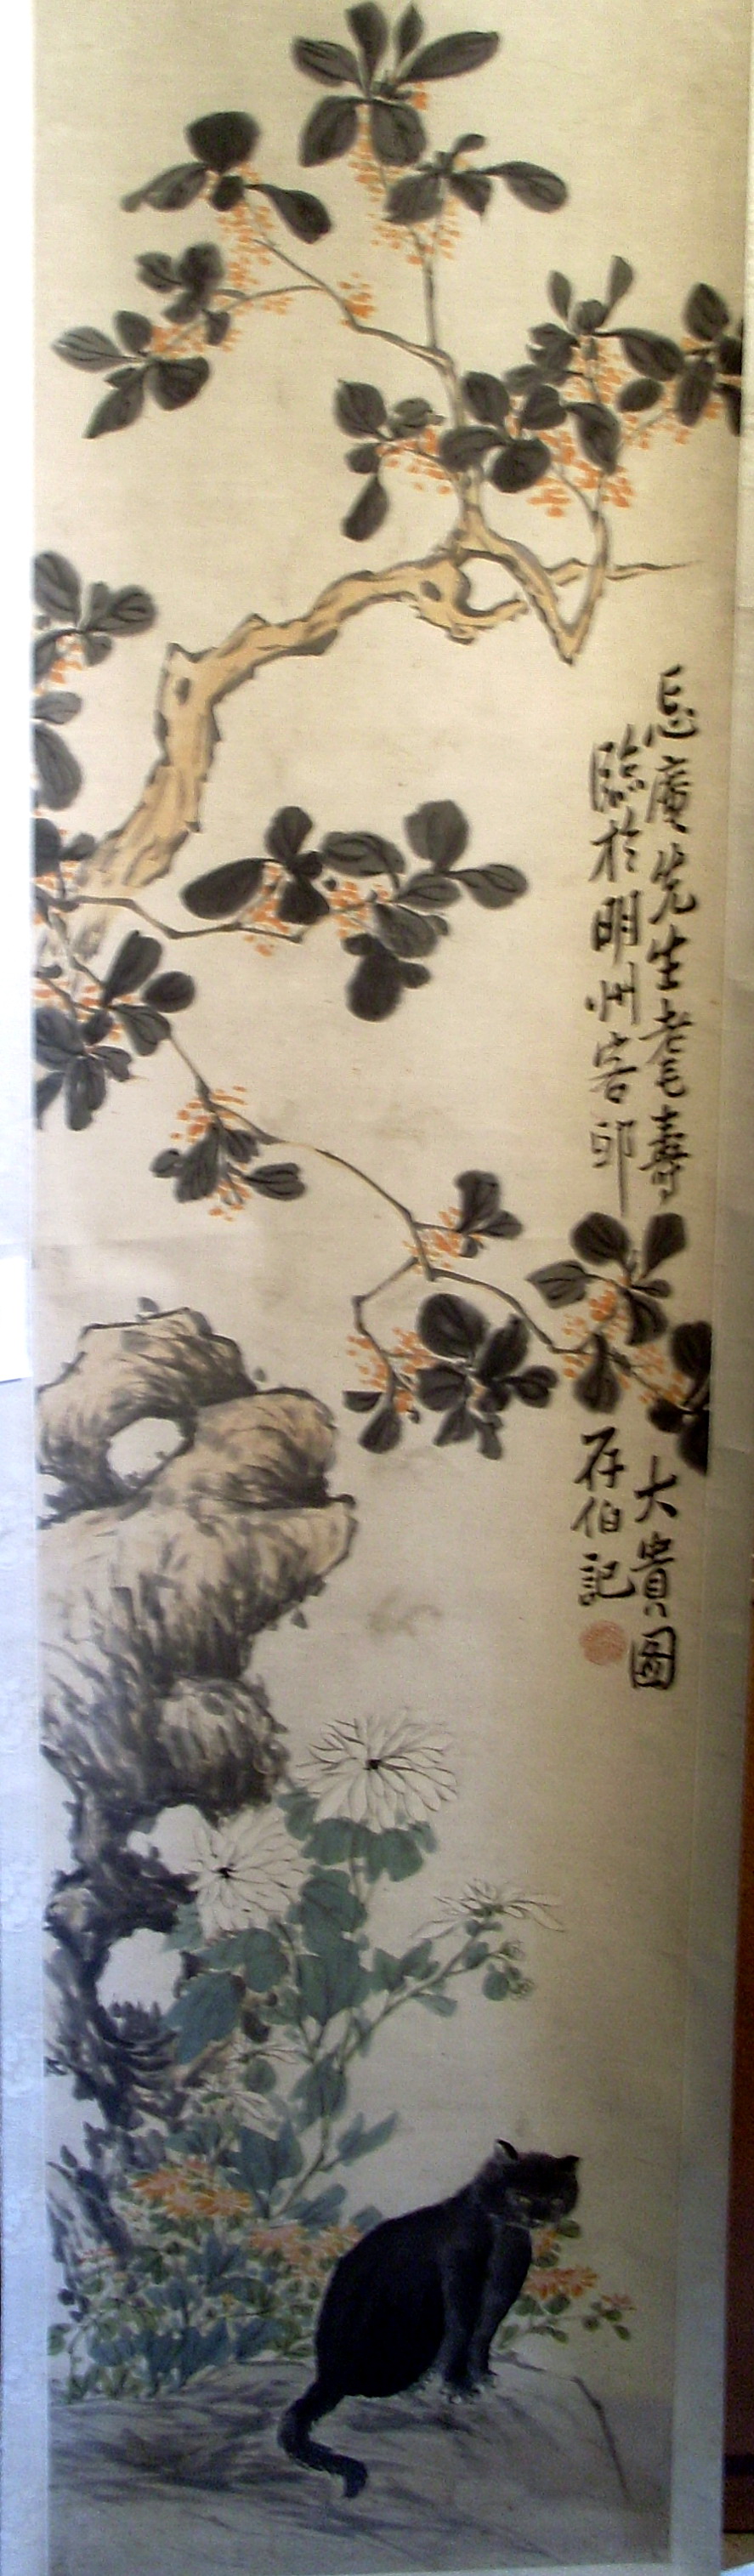 忘庵先生耄壽大貴圖
臨於明州客邸存伯記